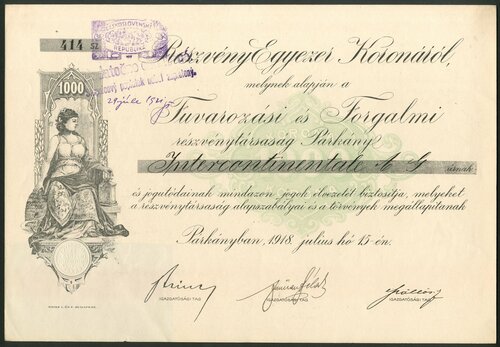 414 SZ.
ČESKOSLOVENSKÁ
REPUBLIKA
Részvény Egyezer Koronáról,
melynek alapján a
1000
Fuvarozási és Forgalmi
részvénytársaság Párkány
Intercontinentale A G úrnak
és jogutódainak mindazon jogok élvezetét biztosítja, melyeket
a részvénytársaság alapszabályai és a törvények megállapítanak
Párkányban, 1918. július hó 15-én.
IGAZGATÓSÁGI TAG
IGAZGATÓSÁGI TAG
IGAZGATÓSÁGI TAG